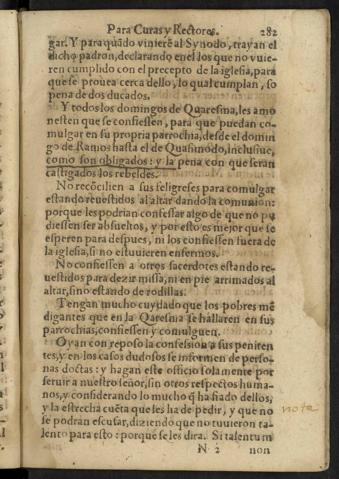 Para Curas y Rectores. 282
gar. Y para quãdo vinierẽ al Synodo, trayan el
dicho padron, declarando en el los que no vuie-
ren cumplido con el precepto de la iglesia, para
que se prouea cerca dello, lo qual cumplan, so
pena de dos ducados.
Y todos los domingos de Quaresma, les amo
nesten que se confiessen, para que puedan co-
mulgar en su propria parrochia, desde el domin
go de Ramos hasta el de Quasimodo, inclusiue,
como son obligados: y la pena con que seran
castigados los rebeldes.
No recõcilien a sus feligreses para comulgar
estando reuestidos al altar dando la comunion:
porque les podrian confessar algo de que no pu
diessen ser absueltos, y por esto es mejor que se
esperen para despues, ni los confiessen fuera de
la iglesia, si no estuuieren enfermos.
No confiessen a otros sacerdotes estando re-
uestidos para dezir missa, ni en pie arrimados al
altar, sino estando de rodillas.
Tengan mucho cuydado que los pobres mẽ
digantes que en la Qaresma se hallaren en sus
parrochias, confiessen y comulguen.
Oyan con reposo la confesion a sus peniten
tes, y en los casos dudosos se informen de perso-
nas doctas: y hagan este officio sola mente por
seruir a nuestro señor, sin otros respectos huma-
nos, y considerando lo mucho q̃ ha fiado dellos,
y la estrecha cuẽta que les ha de pedir, y que no nota
se podran escusar, diziendo que no tuuieron ta-
lento para esto: porque se les dira. Si talentum
N 2 non